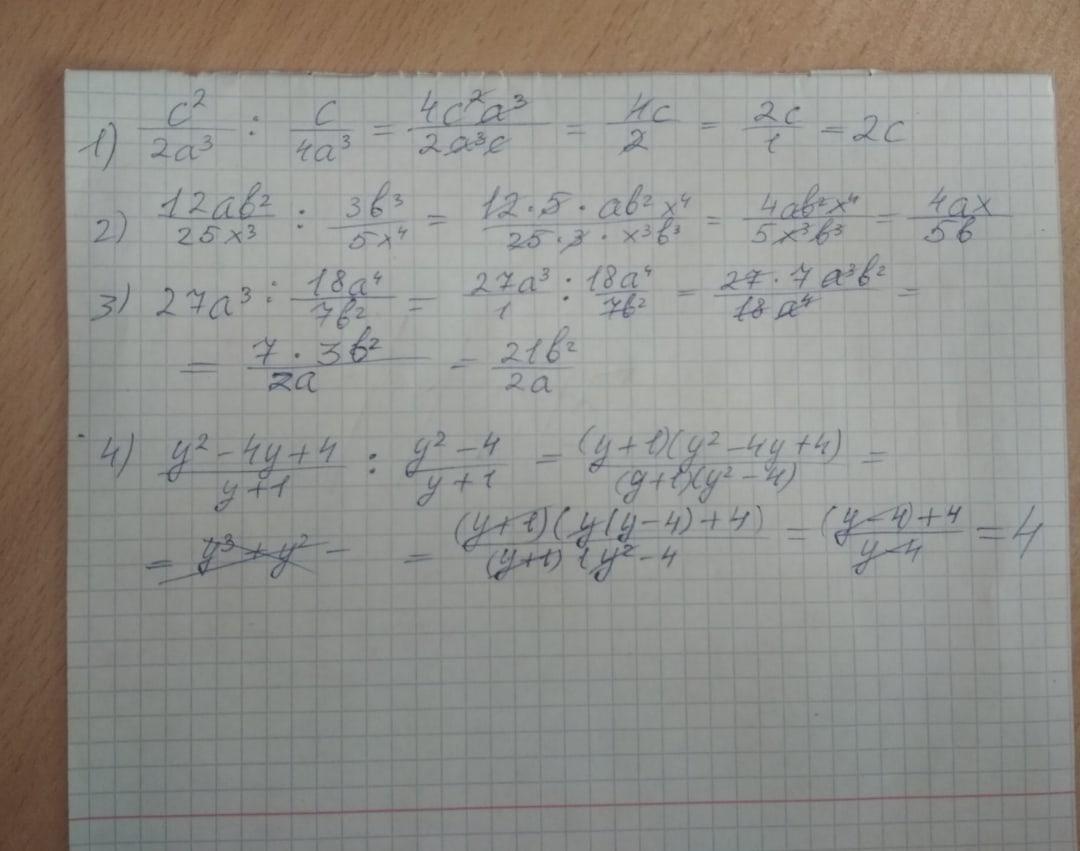 1) c²/2a³ : c/4a³ = 4c²a³/2a³c = 4c/2 = 2c/1 = 2c
2) 12ab²/25x³ : 3b³/5x⁴ = 12·5·ab²x⁴/25·3·x³b³ = 4ab²x⁴/5x³b³ = 4ax/5b
3) 27a³ : 18a⁴/7b² = 27a³/1 : 18a⁴/7b² = 27·7a³b²/18a⁴ =
= 7·3b²/2a = 21b²/2a
4) y²-4y+4/y+1 : y²-4/y+1 = (y+1)(y²-4y+4)/(y+1)(y²-4) =
= y³+y² - = (y+1)(y(y-4)+4)/(y+1)(y²-4 = (y-4)+4/y-4 = 4